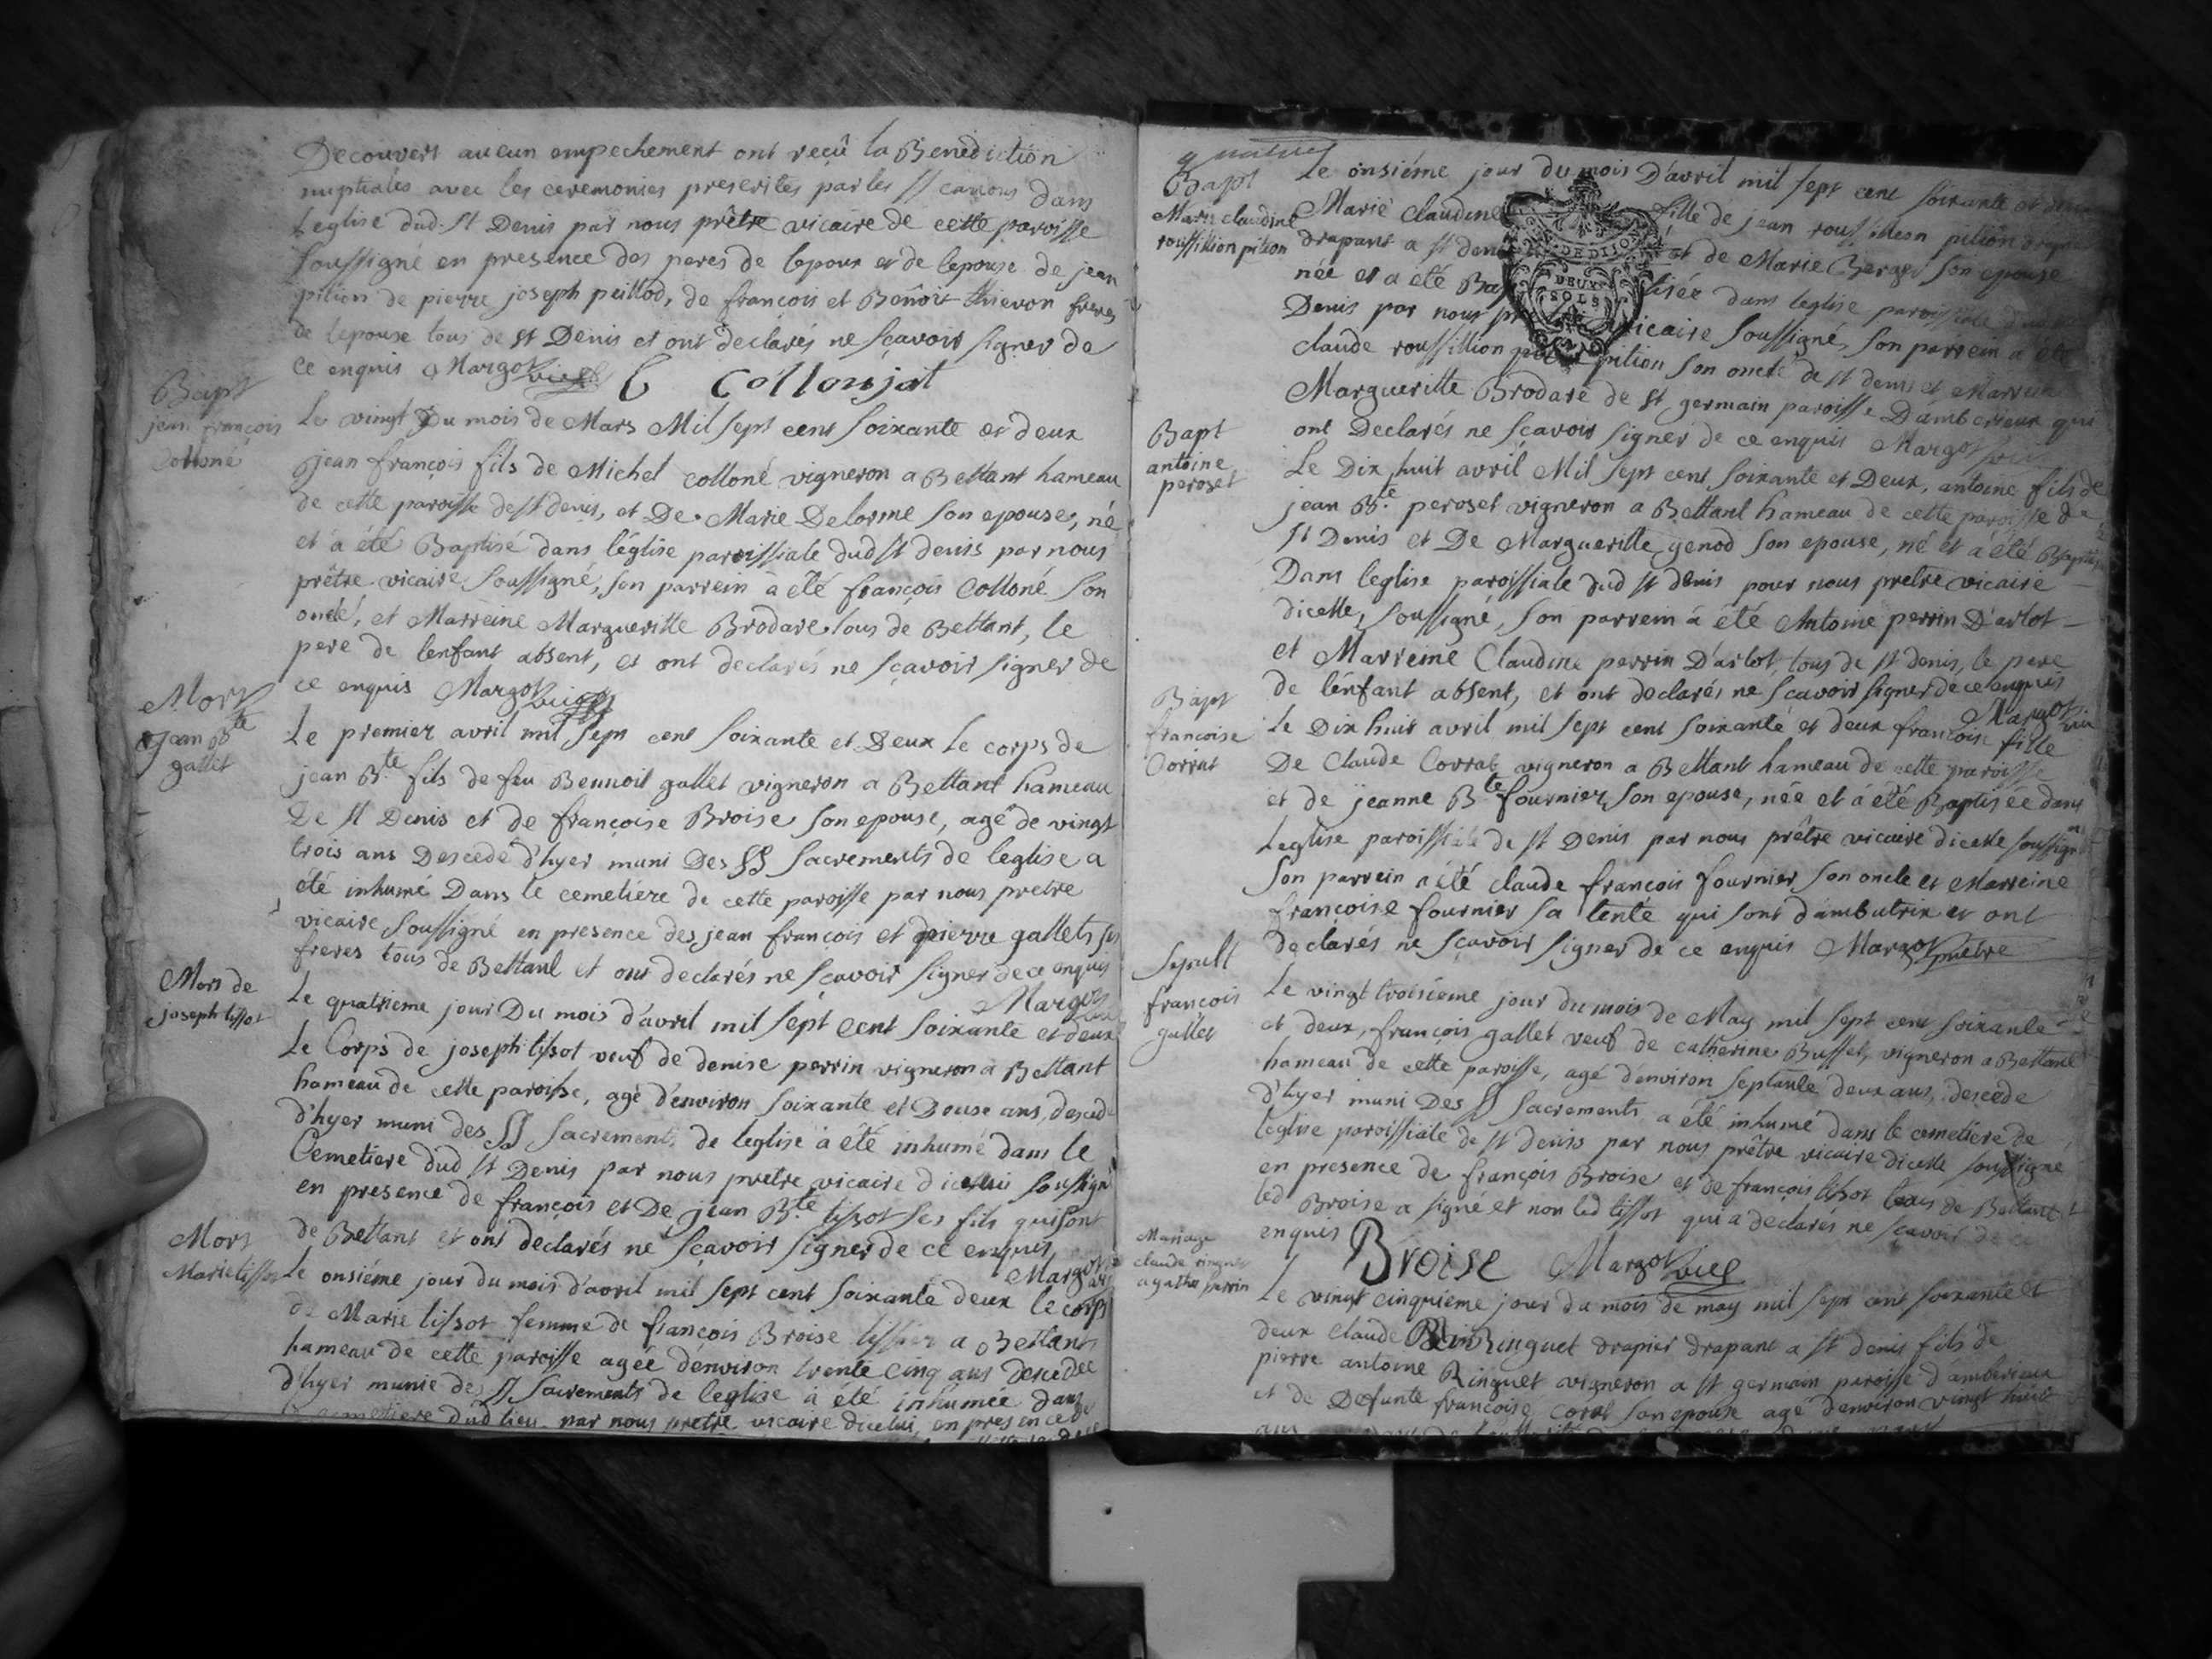 Decouvert aucun empechement ont reçû la Benediction
nuptiales avec les ceremonies prescrites par les SS canons dans
Leglise dud. St Denis par nous prêtre vicaire de cette paroisse
soussigné en presence des peres de lepoux et de lepouse de jean
pition de pierre joseph peillod, de françois et Benoit thievon freres
de lepouse tous de St Denis et ont declarés ne sçavoir signer de
ce enquis Margot vice C Collonjat
Bapt
jean françois
Colloné
Le vingt Du mois de Mars Mil sept cent soixante et deux
jean françois fils de Michel colloné vigneron a Bettant hameau
de cette paroisse de St denis, et De Marie Delorme son epouse, né
et a été Baptisé dans léglise paroissiale dud St denis par nous
prêtre vicaire soussigné, son parrein a été françois Colloné son
oncle, et Marreine Margueritte Brodare tous de Bettant, le
pere de lenfant absent, et ont declarés ne sçavoir signer de
ce enquis Margot vice
Mort
jean Bte
gallet
Le premier avril mil sept cent soixante et Deux Le corps de
jean Bte fils de feu Bennoit gallet vigneron a Bettant hameau
De St Denis et de françoise Broise son epouse, agé de vingt
trois ans Descedé d'hyer muni Des SS sacrements de leglise a
été inhumé Dans le cemetiere de cette paroisse par nous pretre
vicaire soussigné en presence des jean françois et pierre gallets ses
freres tous de Bettant et ont declarés ne sçavoir signer de ce enquis
Margot
Mort de
joseph tissot
Le quatrieme jour Du mois d'avril mil sept cent soixante et deux
Le Corps de joseph tissot veuf de denise perrin vigneron a Bettant
hameau de cette paroisse, agé d'environ soixante et Douse ans, descedé
d'hyer muni des SS sacrements de leglise a été inhumé dans le
Cemetiere dud St Denis par nous pretre vicaire dicelui soussigné
en presence de françois et De jean Bte tissot ses fils qui sont
de Bettant et ont declarés ne sçavoir signer de ce enquis
Margot
Mort
Marie tissot
Le onsiéme jour du mois d'avril mil sept cent soixante deux le corps
de Marie tissot femme de françois Broise tissier a Bettant
hameau de cette paroisse agée d'environ trente cinq ans descedée
d'hyer munie des SS sacrements de leglise a été inhumée dans
cemetiere dud lieu par nous pretre vicaire dicelui, en presence de
Bapt
Marie claudine
roussillion pition
Le onsiéme jour du mois D'avril mil sept cent soixante et deux
Marie Claudine fille de jean roussillion pition drapier
drapant a St denis et de Marie Berger son epouse
née et a été Baptisée dans leglise paroissiale
DE DIJON
DEUX
SOLS
Denis par nous vicaire soussigné, son parrein a été
claude roussillion pition son oncle de St denis et Marreine
Margueritte Brodare de St germain paroisse D'amberieux qui
ont Declarés ne sçavoir signer de ce enquis Margot
Bapt
antoine
peroset
Le Dix huit avril Mil sept cent soixante et Deux, antoine fils de
jean Bte peroset vigneron a Bettant hameau de cette paroisse de
St Denis et De Margueritte genod son epouse, né et a été Baptisé
Dans leglise paroissiale dud St denis pour nous pretre vicaire
dicelle, soussigné, son parrein a été Antoine perrin D'arlot
et Marreine Claudine perrin D'arlot, tous de St denis, le pere
de lénfant absent, et ont declarés ne sçavoir signer de ce enquis
Margot
Bapt
françoise
Corrat
Le Dix huit avril mil sept cent soixante et deux françoise fille
De Claude Corrat vigneron a Bettant hameau de cette paroisse
et de jeanne Bte fournier son epouse, née et a été Baptisée dans
Leglise paroissiale de St Denis par nous prêtre vicaire dicelle soussigné
son parrein a été claude françois fournier son oncle et Marreine
françoise fournier sa tente qui sont d'ambutrix et ont
declarés ne sçavoir signer de ce enquis Margot pretre
Sepult
françois
gallet
Le vingt troisieme jour du mois de May mil sept cent soixante
et deux, françois gallet veuf de catherine Buffet, vigneron a Bettant
hameau de cette paroisse, agé d'environ septante deux ans, descedé
d'hyer muni Des SS sacrements a été inhumé dans le cemetiere de
leglise paroissiale de St denis par nous prêtre vicaire dicelle soussigné
en presence de françois Broise et de françois tissot tous de Bettant
led Broise a signé et non led tissot qui a declarés ne sçavoir de ce
enquis Broise Margot vice
Mariage
claude ringuet
agathe perrin
Le vingt cinquieme jour du mois de may mil sept cent soixante et
deux claude Ringuet drapier drapant a St denis fils de
pierre antoine Ringuet vigneron a St germain paroisse d'amberieux
et de Defunte françoise corat son epouse agé d'environ vingt huit